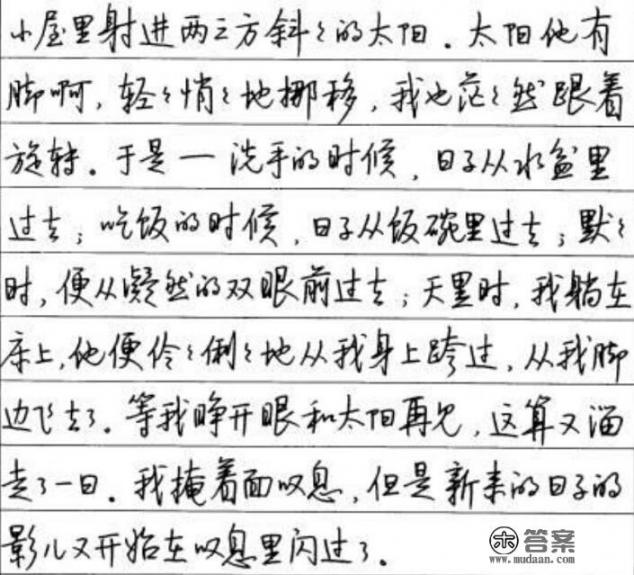 小屋里射进两三方斜々的太阳。太阳他有
脚啊，轻々悄々地挪移，我也茫々然跟着
旋转。于是一洗手的时候，日子从水盆里
过去；吃饭的时候，日子从饭碗里过去；默々
时，便从凝然的双眼前过去；天黑时，我躺在
床上，他便伶々俐々地从我身上跨过，从我脚
边飞去了。等我睁开眼和太阳再见，这算又溜
走了一日。我掩着面叹息，但是新来的日子的
影儿又开始在叹息里闪过了。
答案
www.mudaan.com